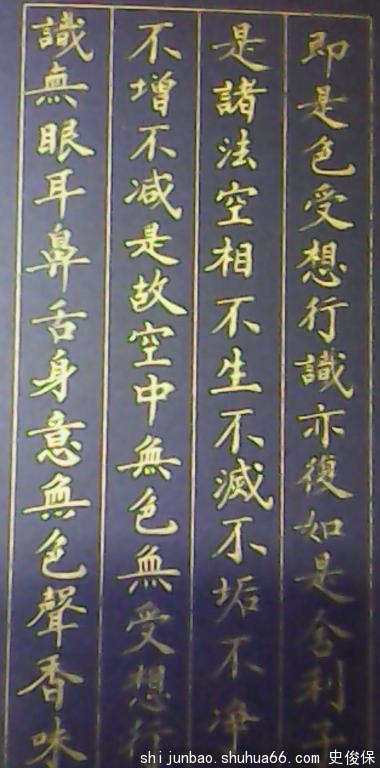 即是色受想行識亦復如是舍利子
是諸法空相不生不滅不垢不净
不增不减是故空中無色無受想行
識無眼耳鼻舌身意無色聲香味
shijunbao.shuhua66.com 史俊保